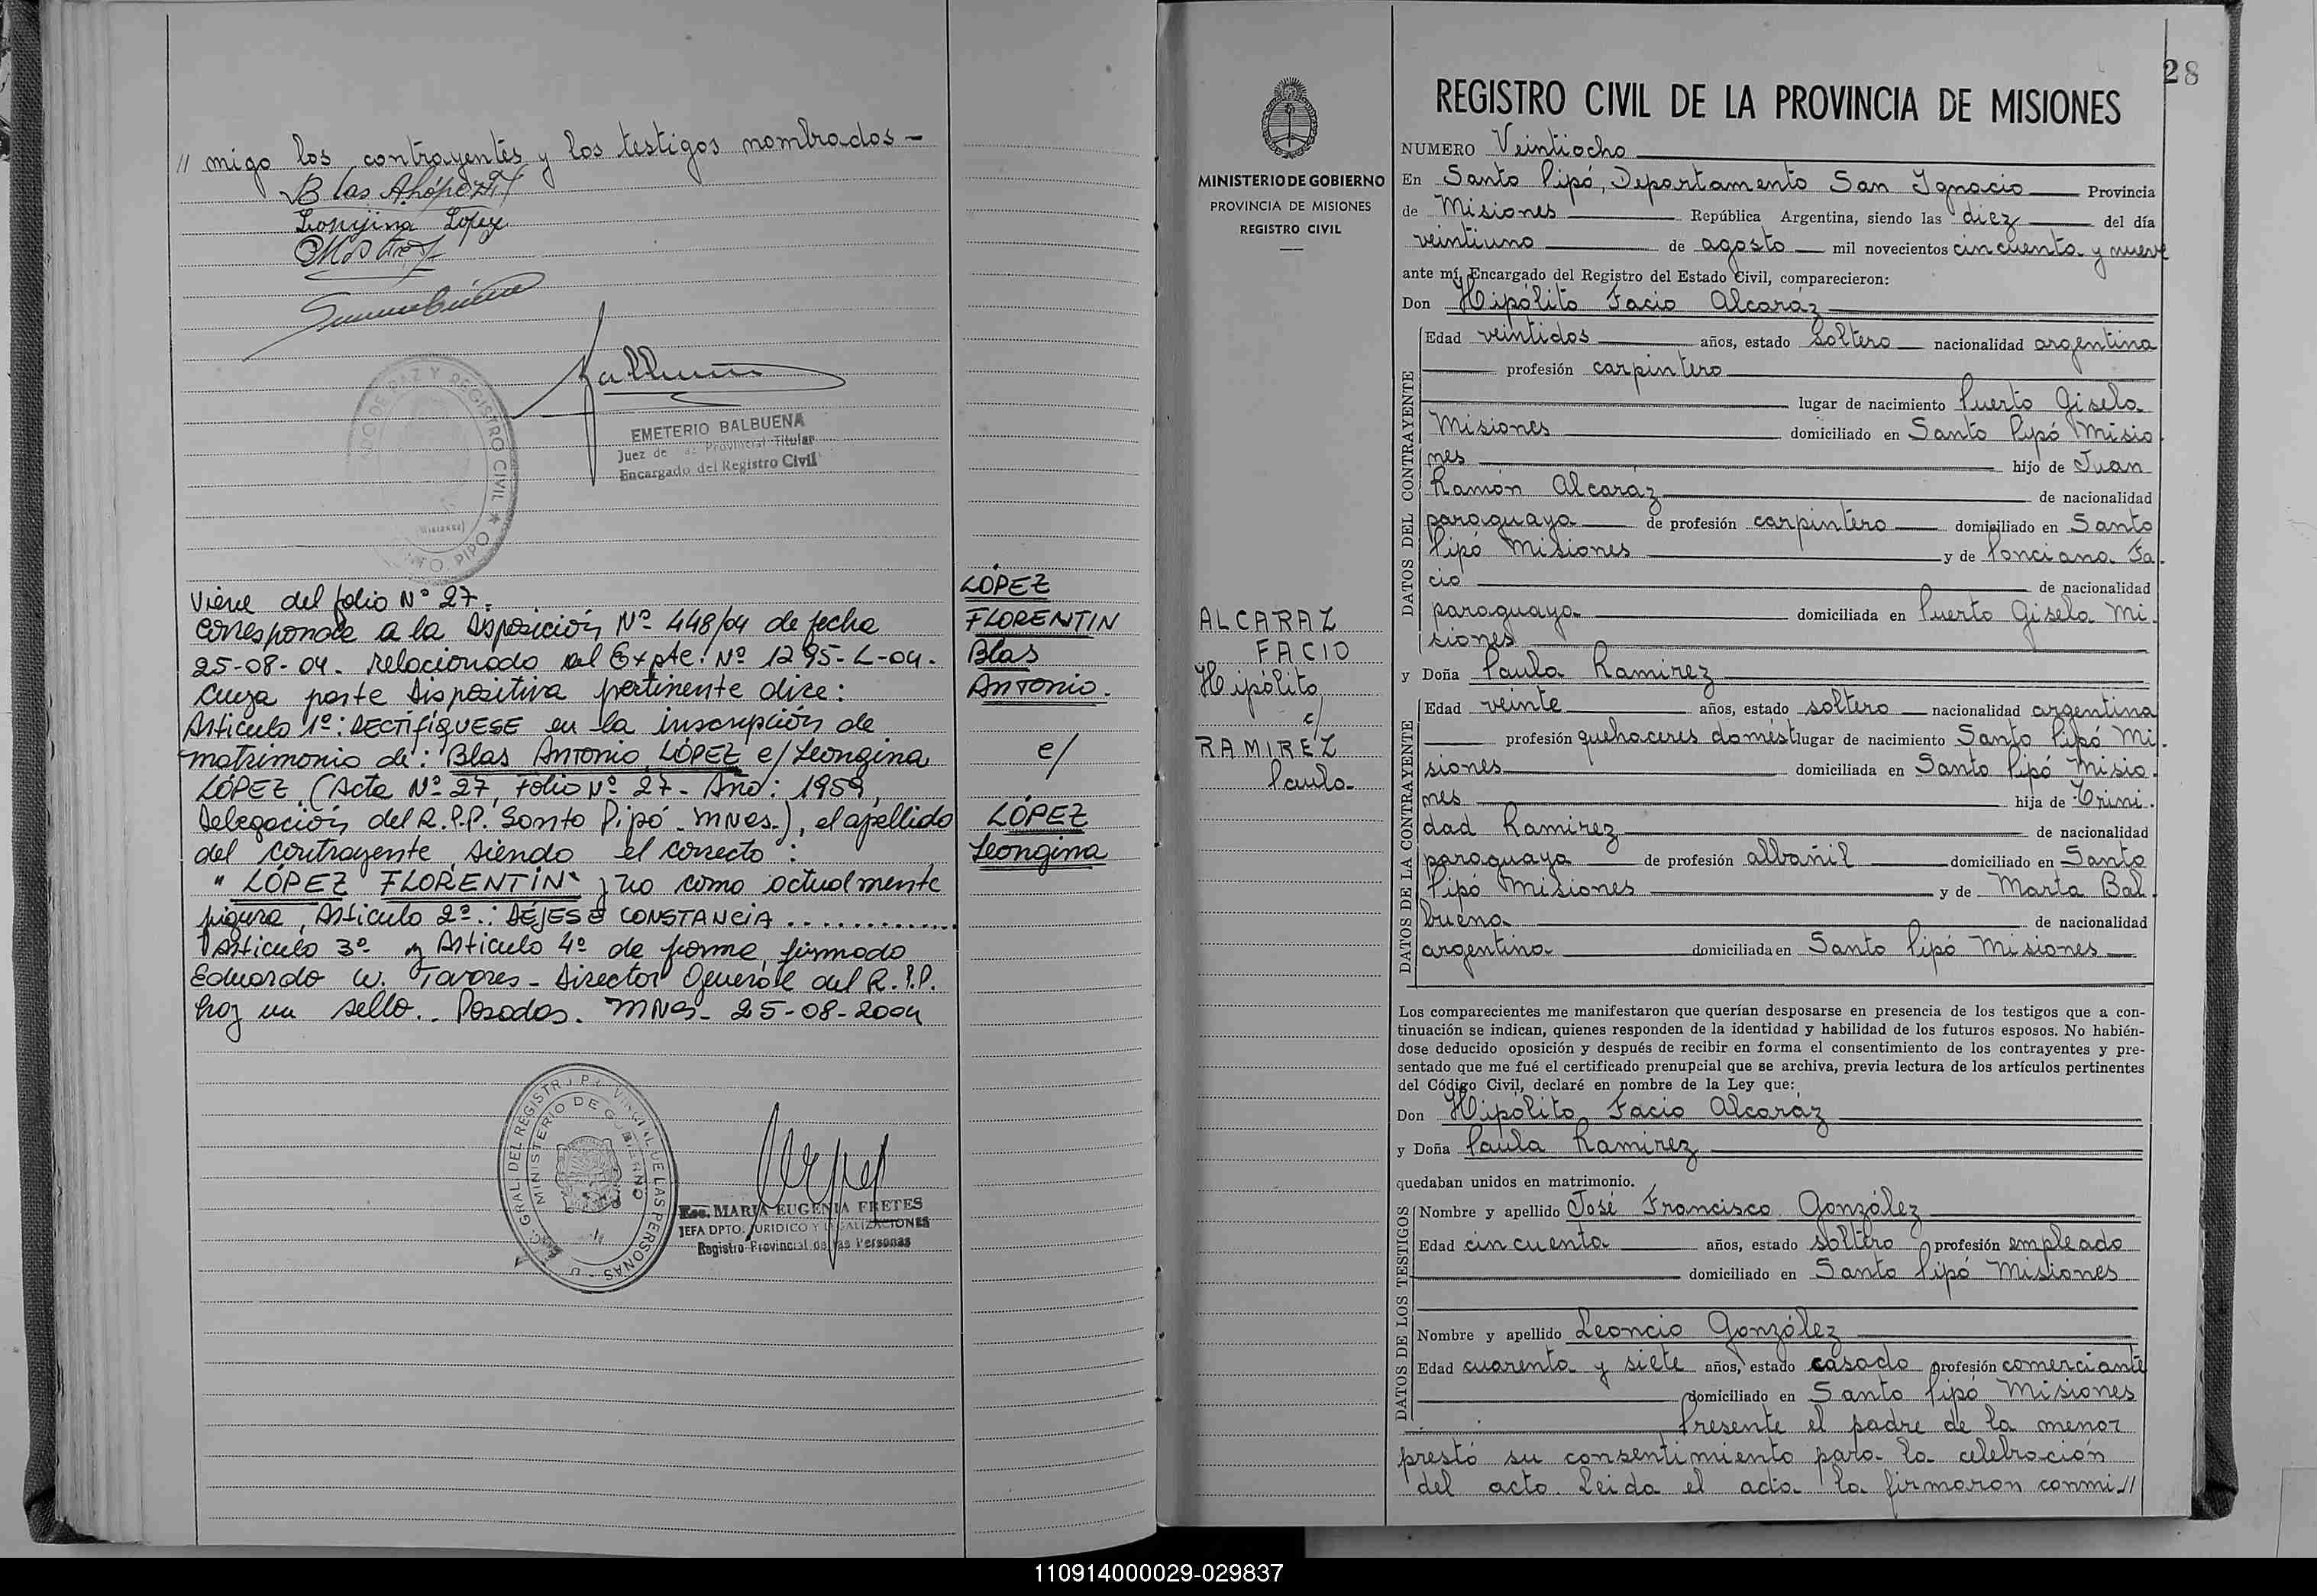 // migo los contrayentes y los testigos nombrados -
Blas A López
Leongina López
EMETERIO BALBUENA
Juez de Paz Provincial Titular
Encargado del Registro Civil
Viene del folio Nº 27.
Corresponde a la Disposición Nº 448/04 de fecha
25-08-04. relacionado al Expte. Nº 1295-L-04.
cuya parte Dispositiva pertinente dice:
Artículo 1º: RECTIFIQUESE en la inscripción de
matrimonio de: Blas Antonio LÓPEZ c/ Leongina
LÓPEZ (Acta Nº 27, Folio Nº 27 - Año: 1959,
Delegación del R.P.P. Santo Pipó - Mnes.), el apellido
del contrayente, siendo el correcto:
"LÓPEZ FLORENTIN" y no como actualmente
figura, Artículo 2º: DÉJESE CONSTANCIA .............
Artículo 3º y Artículo 4º de forma, firmado
Eduardo W. Tavares - Director General del R.P.P.
hay un sello.. Posadas. Mnes- 25-08-2004
LÓPEZ
FLORENTIN
Blas
Antonio.
c/
LÓPEZ
Leongina
Esc. MARIA EUGENIA FRETES
JEFA DPTO. JURIDICO Y LEGALIZACIONES
Registro Provincial de las Personas
28
MINISTERIO DE GOBIERNO
PROVINCIA DE MISIONES
REGISTRO CIVIL
ALCARAZ
FACIO
Hipólito
c/
RAMIREZ
Paula
REGISTRO CIVIL DE LA PROVINCIA DE MISIONES
NUMERO Veintiocho
En Santo Pipó, Departamento San Ignacio Provincia
de Misiones República Argentina, siendo las diez del día
veintiuno de agosto mil novecientos cincuenta y nueve
ante mí, Encargado del Registro del Estado Civil, comparecieron:
Don Hipólito Facio Alcaráz
DATOS DEL CONTRAYENTE
Edad veintidos años, estado soltero nacionalidad argentina
profesión carpintero
lugar de nacimiento Puerto Gisela
Misiones domiciliado en Santo Pipó Misio
nes hijo de Juan
Ramón Alcaráz de nacionalidad
paraguaya de profesión carpintero domiciliado en Santo
Pipó Misiones y de Ponciana Fa.
cio de nacionalidad
paraguaya domiciliada en Puerto Gisela Mi.
siones
y Doña Paula Ramirez
DATOS DE LA CONTRAYENTE
Edad veinte años, estado soltero nacionalidad argentina
profesión quehaceres domést lugar de nacimiento Santo Pipó Mi.
siones domiciliada en Santo Pipó Misio.
nes hija de Trini.
dad Ramirez de nacionalidad
paraguaya de profesión albañil domiciliado en Santo
Pipó Misiones y de Marta Bal.
buena de nacionalidad
argentina domiciliada en Santo Pipó Misiones
Los comparecientes me manifestaron que querían desposarse en presencia de los testigos que a con-
tinuación se indican, quienes responden de la identidad y habilidad de los futuros esposos. No habién-
dose deducido oposición y después de recibir en forma el consentimiento de los contrayentes y pre-
sentado que me fué el certificado prenupcial que se archiva, previa lectura de los artículos pertinentes
del Código Civil, declaré en nombre de la Ley que:
Don Hipólito Facio Alcaráz
y Doña Paula Ramirez
quedaban unidos en matrimonio.
DATOS DE LOS TESTIGOS
Nombre y apellido José Francisco González
Edad cincuenta años, estado soltero profesión empleado
domiciliado en Santo Pipó Misiones
Nombre y apellido Leoncio González
Edad cuarenta y siete años, estado casado profesión comerciante
domiciliado en Santo Pipó Misiones
Presente el padre de la menor
prestó su consentimiento para la celebración
del acto. Leida el acta la firmaron conmi//
110914000029-029837